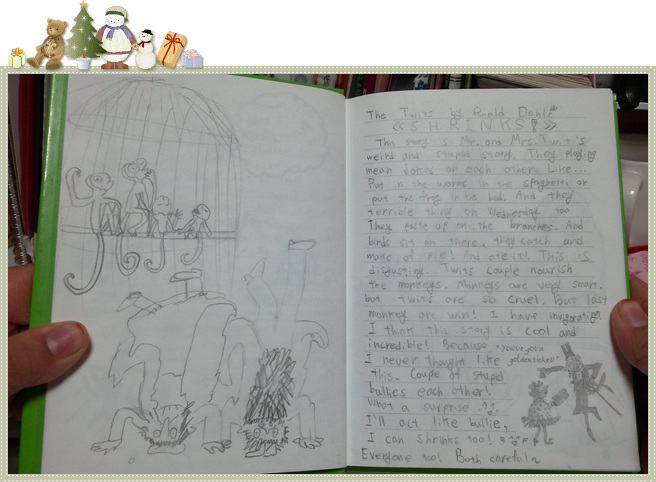 The Twits by Roald Dahl
《SHRINKS!》
This story is Mr. and Mrs. Twit's
weird and stupid story. They playing
mean Jokes on each other. Like...
Put in the worms in the spaghetti or
put the frog in the bed. And they
terrible thing on Wednesday too.
They paste up on the branches. And
birds sit on there, they catch and
make of pie! And ate it! This is
disgusting. Twits couple nourish
the monkeys. Monkeys are very smart,
but twits are so cruel. But last
monkeys are win! I have invigorating
I think this story is cool and
incredible! Because
"You've got a
golden ticket!"
I never thought like
this. Coupe of stupid
bullies each other!
What a surprise
I'll act like bullie,
I can shrinks too!
Everyone too! Both careful~